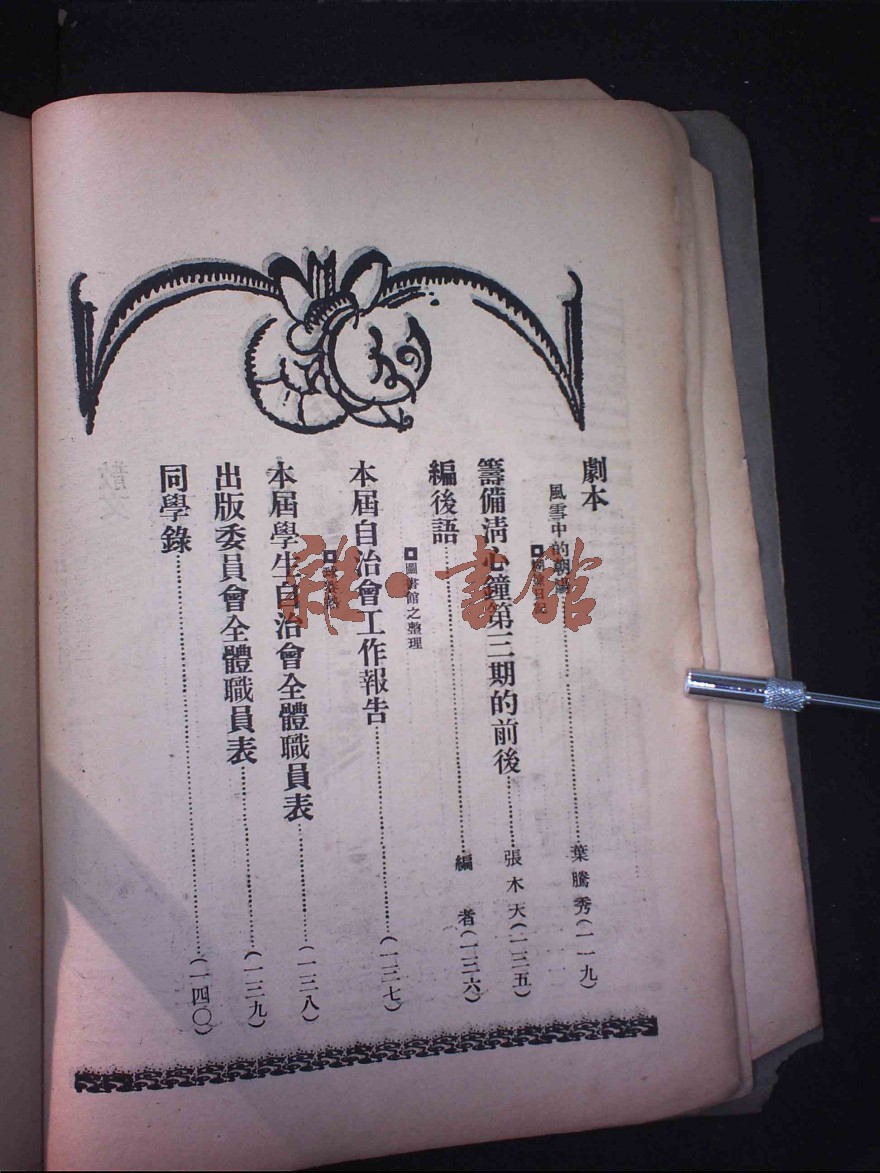 劇本
風雪中的朝陽……葉騰秀(一一九)
籌備清心鐘第三期的前後……張木天(一三五)
編後語……編者(一三六)
圖書館之整理
本屆自治會工作報告……(一三七)
本屆學生自治會全體職員表……(一三八)
出版委員會全體職員表……(一三九)
同學錄……(一四〇)
雜·書館